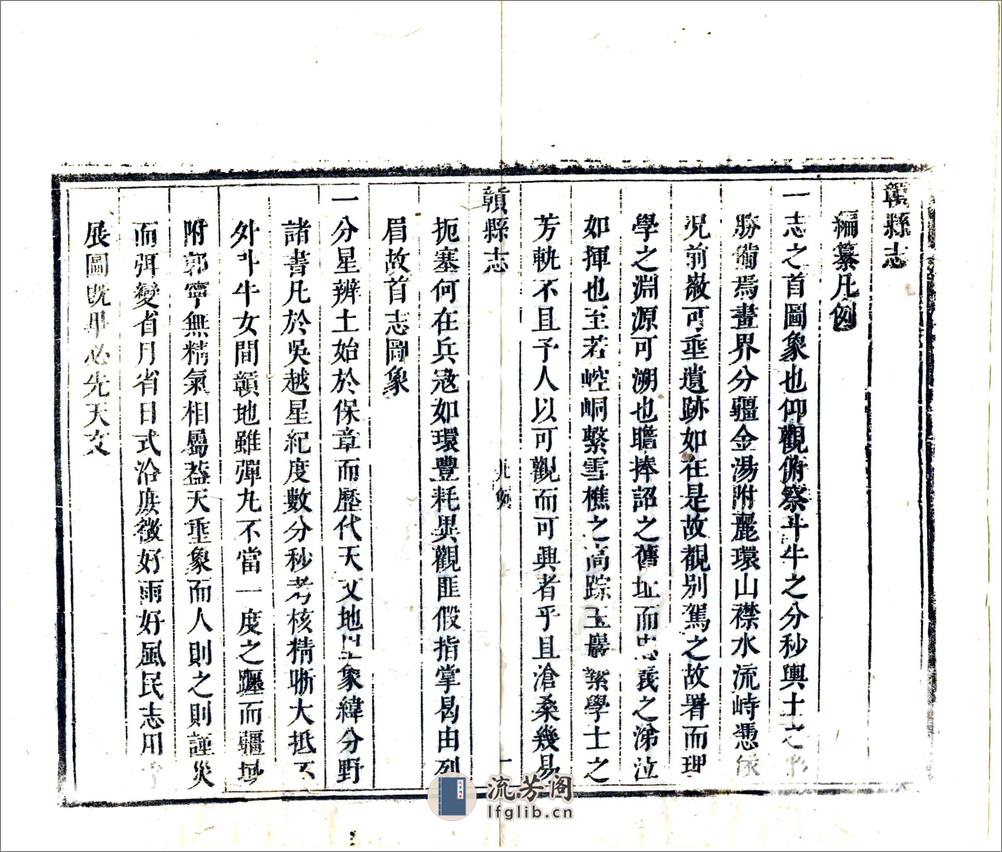 贛縣志
編纂凡例
一志之首圖象也仰觀俯察斗牛之分秒輿土之形
勝備焉畫界分疆金湯附麗環山襟水流峙憑依
况前徽可垂遺跡如在是故覩别駕之故署而理
學之淵源可溯也瞻捧詔之舊址而忠義之涕泣
如揮也至若崆峒繫雪樵之高踪玉巖縈學士之
芳軌不且予人以可觀而可興者乎且滄桑幾易
贛縣志
凡例
一
扼塞何在兵寇如環豐耗異觀匪假指掌曷由列
眉故首志圖象
一分星辨土始於保章而歷代天文地里象緯分野
諸書凡於吳越星紀度數分秒考核精晰大抵不
外斗牛女間贛地雖彈丸不當一度之躔而疆域
附郭寧無精氣相屬葢天垂象而人則之則謹災
而弭變省月省日式洽庶徵好雨好風民志用
展圖既畢必先天文
流芳阁
lfglib.cn